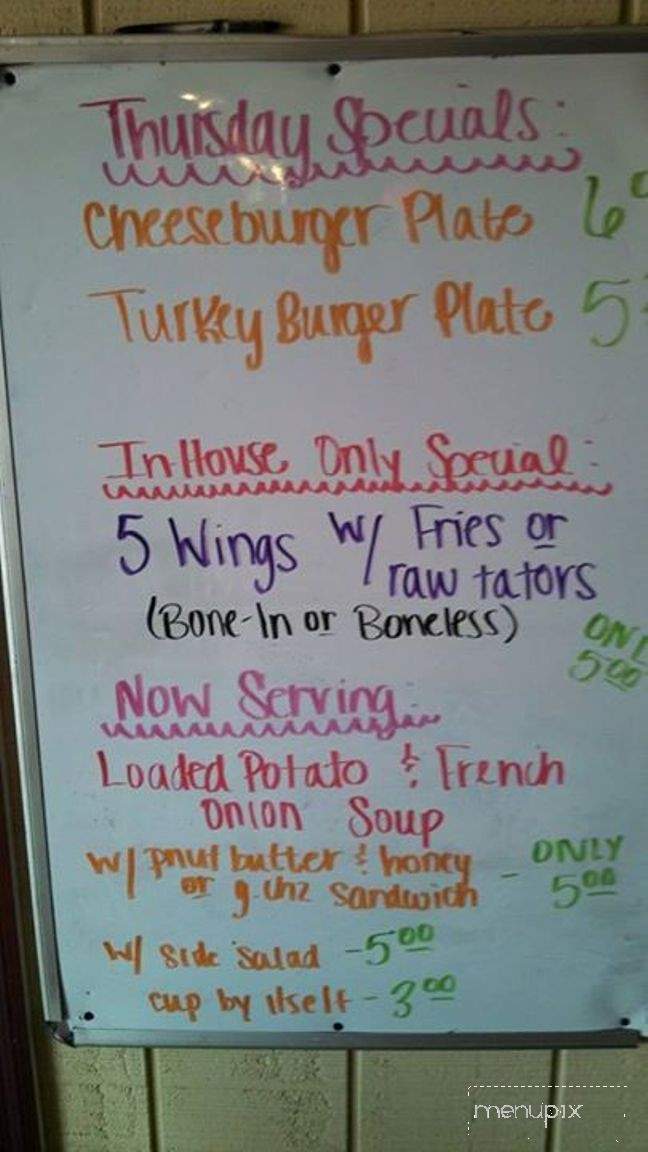 Thursday Specials:
Cheeseburger Plate 6
Turkey Burger Plate 5
In-House Only Special:
5 Wings w/ Fries or
raw tators
(Bone-In or Boneless)
5.00
Now Serving:
Loaded Potato & French
Onion Soup
w/ pnut butter & honey - ONLY
or g. chz sandwich 5.00
w/ side salad - 5.00
cup by itself - 3.00
menupix